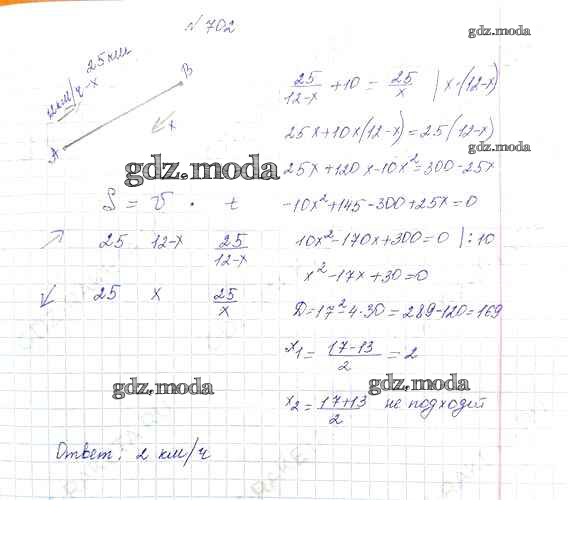 № 702
gdz.moda
25 км
B
12 км/ч - x
x
A
gdz.moda
S = v · t
25 12-x 25/(12-x)
25 x 25/x
25/(12-x) + 10 = 25/x | x·(12-x)
25x+10x(12-x)=25(12-x)
25x+120x-10x²=300-25x
-10x²+145-300+25x=0
10x²-170x+300=0 |:10
x²-17x+30=0
D=17²-4·30=289-120=169
x₁= (17-13)/2 =2
gdz.moda
gdz.moda
x₂= (17+13)/2 не подходит
Ответ: 2 км/ч